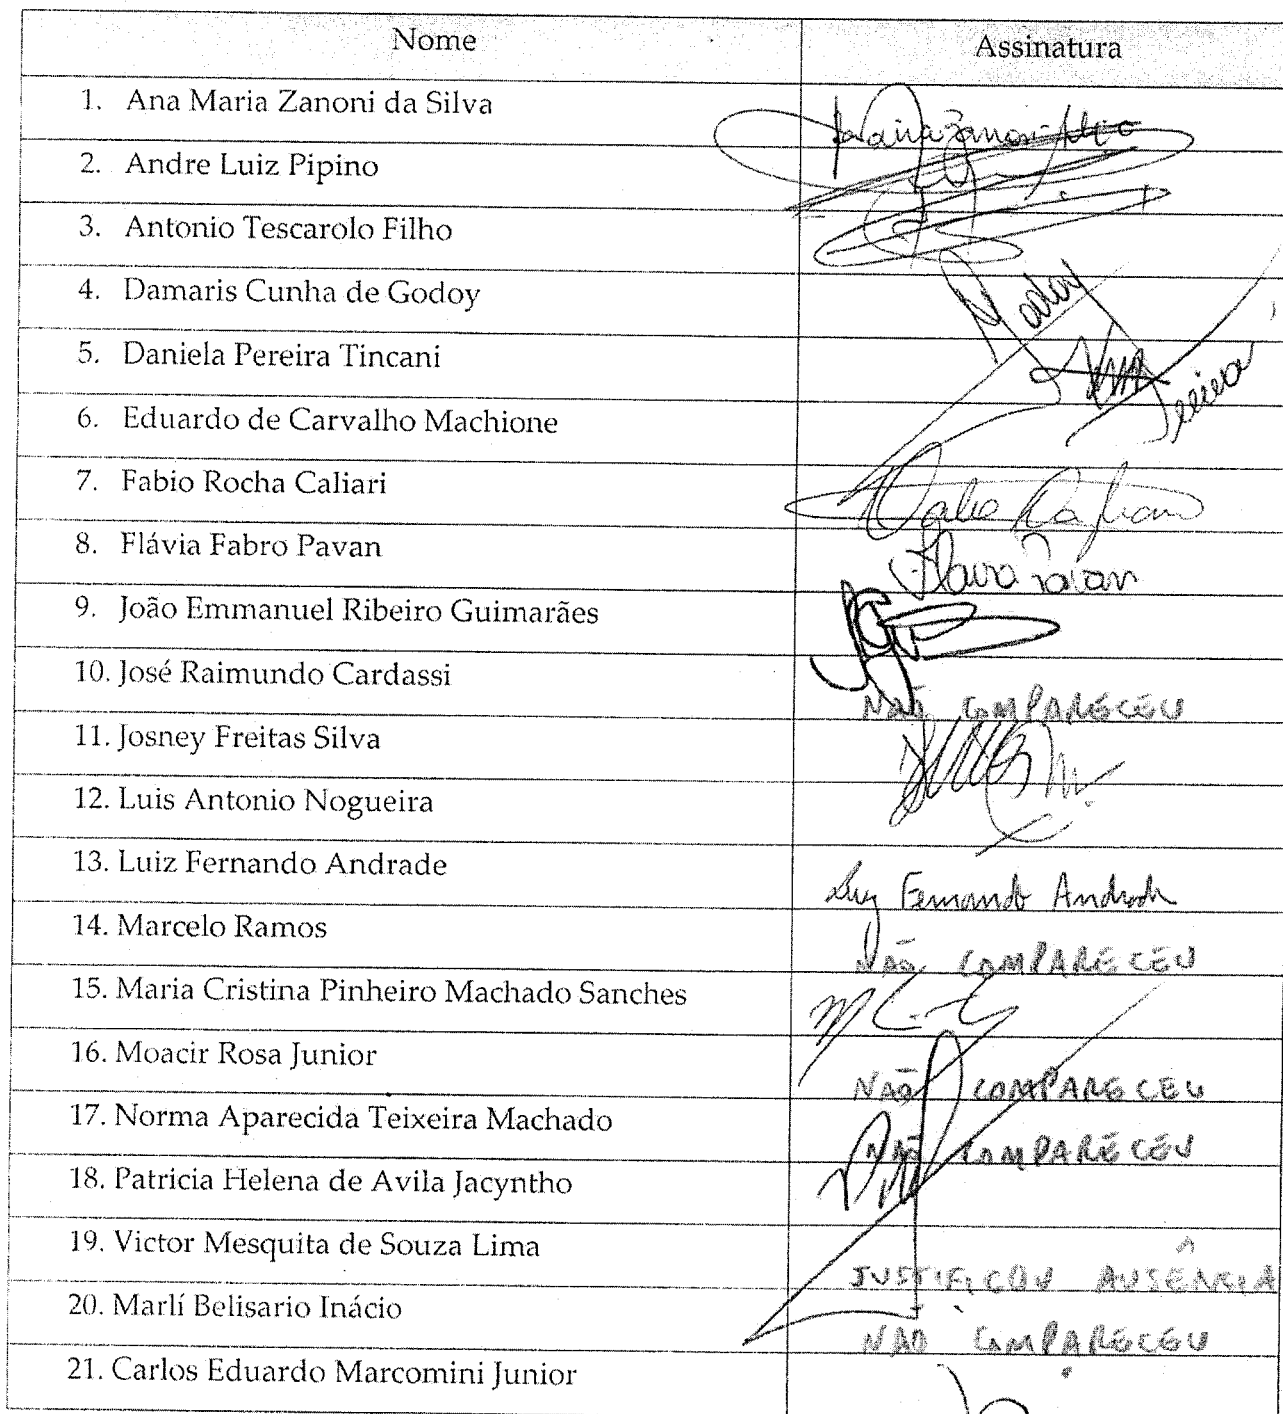 Nome Assinatura
1. Ana Maria Zanoni da Silva
2. Andre Luiz Pipino
3. Antonio Tescarolo Filho
4. Damaris Cunha de Godoy Godoy
5. Daniela Pereira Tincani Pereira
6. Eduardo de Carvalho Machione
7. Fabio Rocha Caliari
8. Flávia Fabro Pavan Flavia Pavan
9. João Emmanuel Ribeiro Guimarães
10. José Raimundo Cardassi NÃO COMPARECEU
11. Josney Freitas Silva
12. Luis Antonio Nogueira
13. Luiz Fernando Andrade Luiz Fernando Andrade
14. Marcelo Ramos NÃO COMPARECEU
15. Maria Cristina Pinheiro Machado Sanches
16. Moacir Rosa Junior NÃO COMPARECEU
17. Norma Aparecida Teixeira Machado NÃO COMPARECEU
18. Patricia Helena de Avila Jacyntho
19. Victor Mesquita de Souza Lima JUSTIFICOU AUSÊNCIA
20. Marlí Belisario Inácio NÃO COMPARECEU
21. Carlos Eduardo Marcomini Junior